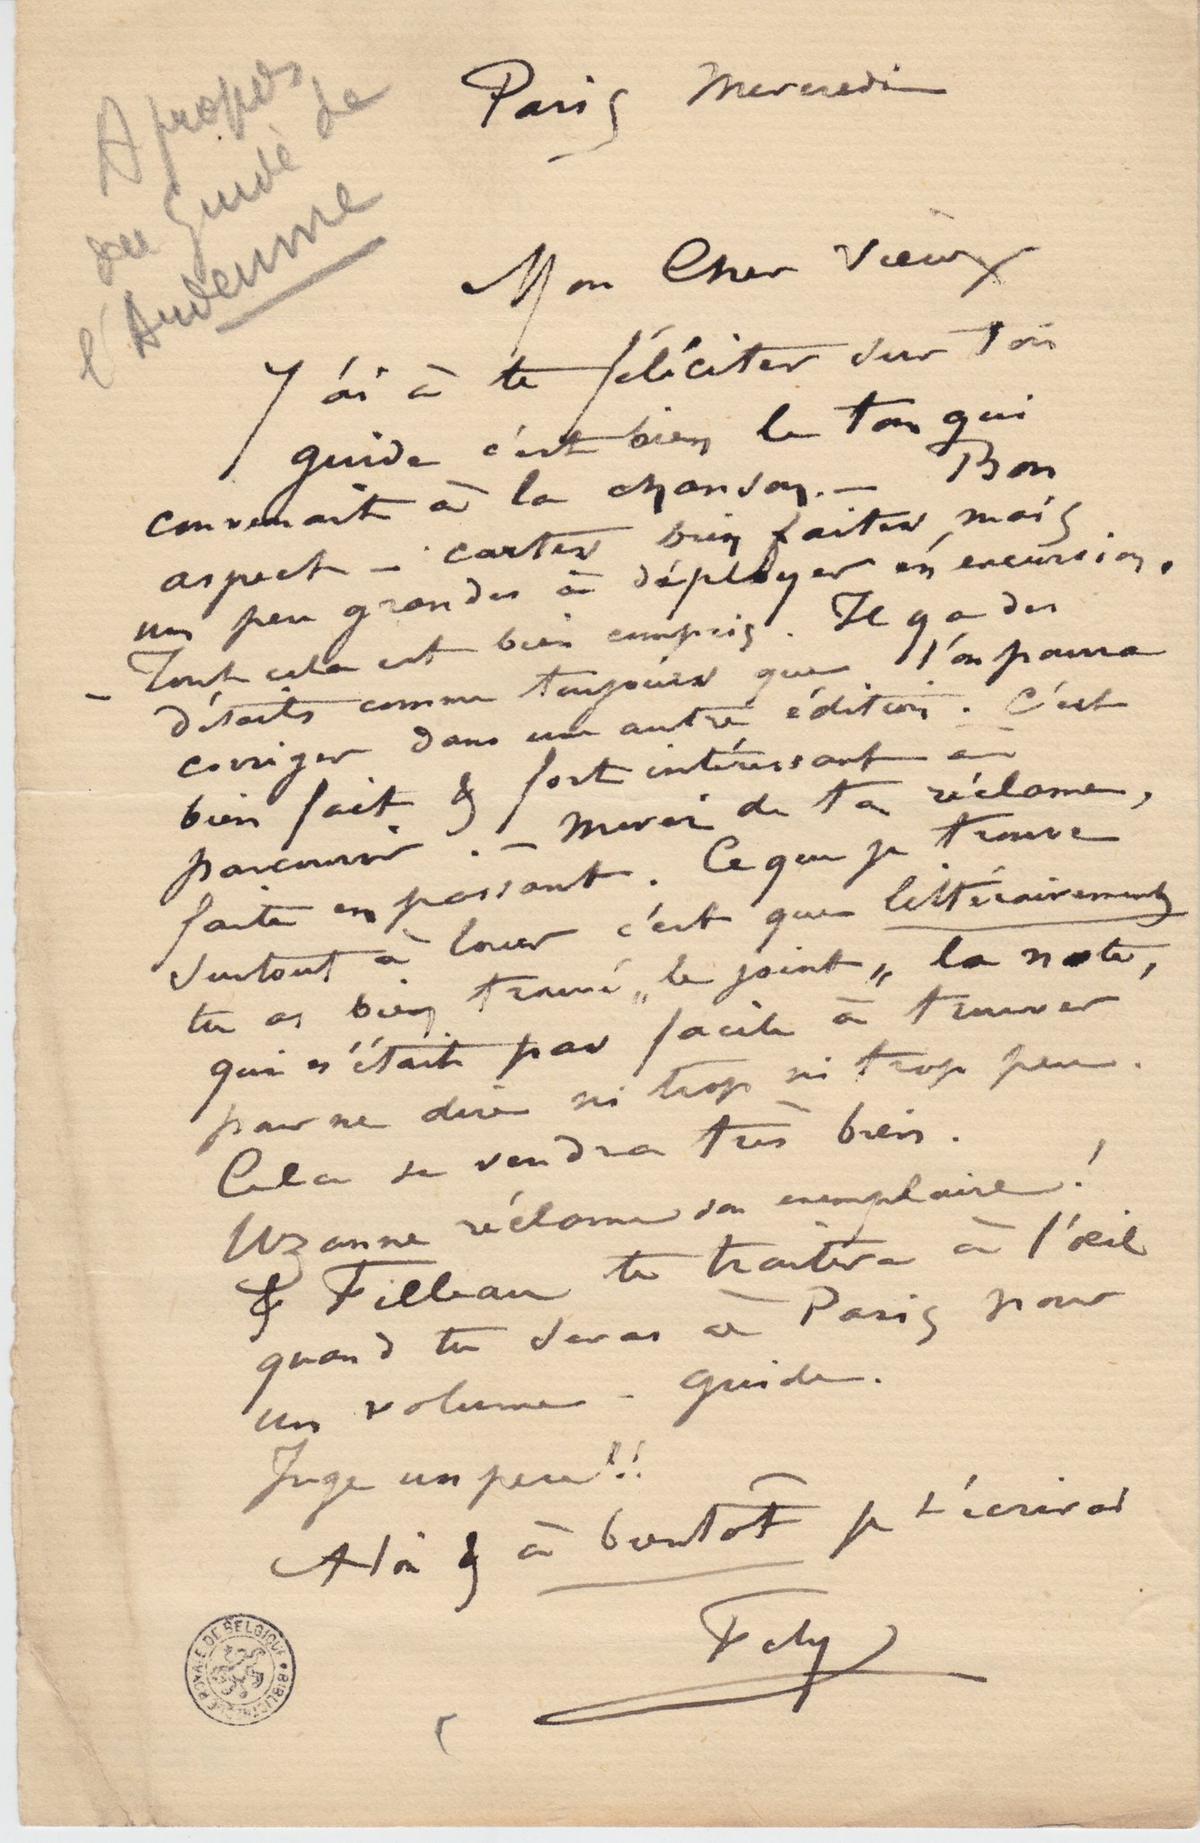 A propos
du Guide de
l'Ardenne
Paris Mercredi
Mon Cher Vieux
J'ai à te féliciter sur ton
guide c'est bien le ton qui
convenait à la chanson. – Bon
aspect – cartes bien faites mais
un peu grandes à déployer en excursion.
– Tout cela est bien compris. Il y a des
détails comme toujours que l'on pourra
corriger dans une autre édition. C'est
bien fait & fort intéressant à
parcourir. – Merci de ta réclame,
faite en passant. Ce que je trouve
surtout à louer c'est que littérairement
tu as bien trouvé „le joint„ la note,
qui n'était pas facile à trouver
pour ne dire ni trop ni trop peu.
Cela se vendra très bien.
Uzanne réclame son exemplaire!
& Filleau te traitera à l'œil
quand tu seras à Paris pour
un volume – guide.
Juge un peu!!
A toi & à bientôt je t'écrirai
Fély
BIBLIOTHEQUE ROYALE DE BELGIQUE